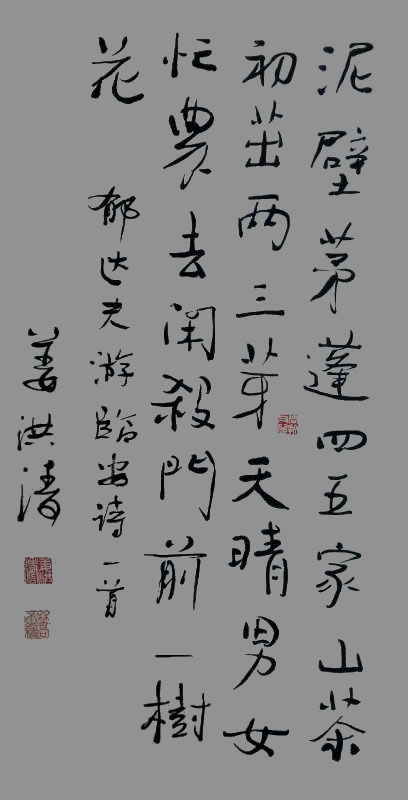 泥壁茅蓬四五家山茶
初茁两三芽天晴男女
忙農去闲殺門前一樹
花
郁达夫游临安诗一首
姜洪清